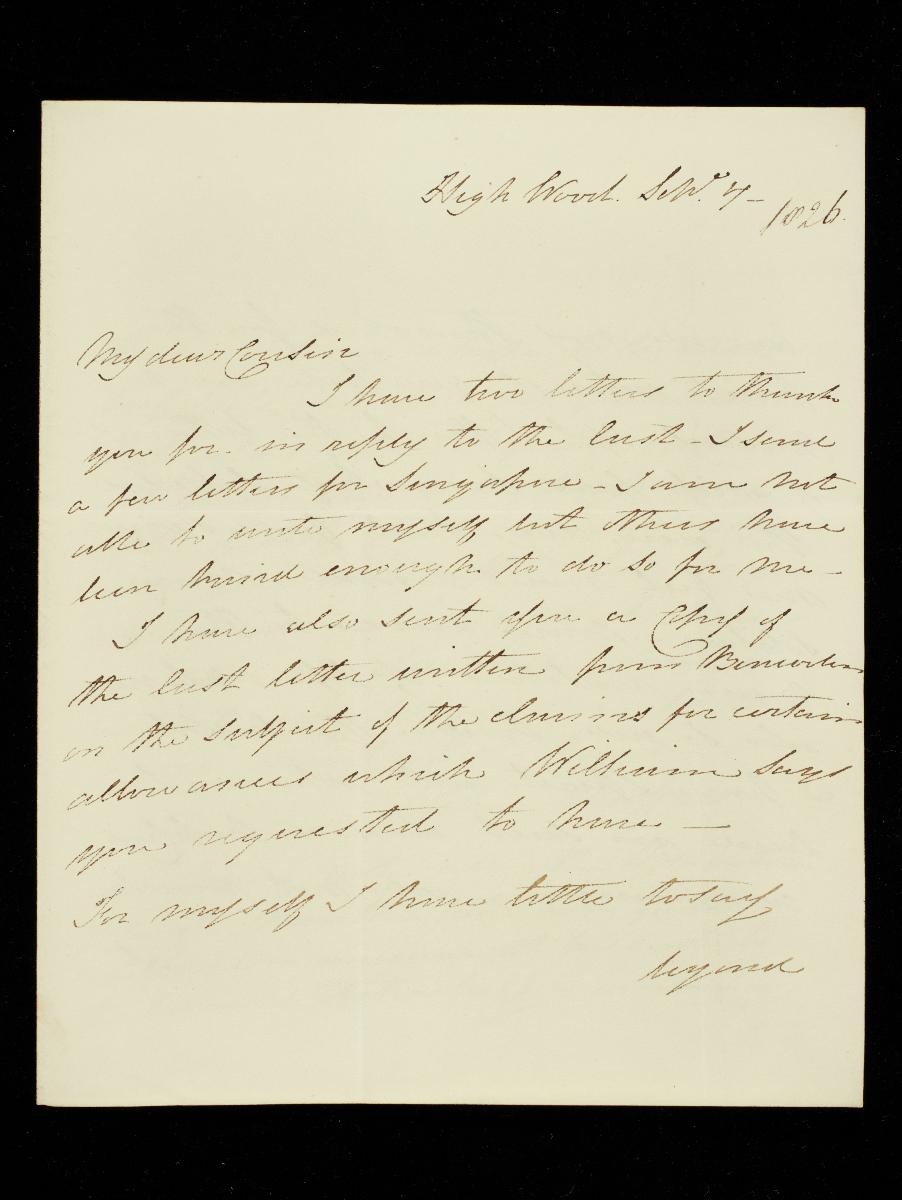 High Wood. Sepr. 7 -
1826.
My dear Cousin
I have two letters to thank
you for. in reply to the last - I send
a few letters for Singapore - I am not
able to write myself but others have
been kind enough to do so for me -
I have also sent you a Copy of
the last letter written from Bencoolen
on the subject of the claims for certain
allowances which William says
you requested to have -
For myself I have little to say
beyond